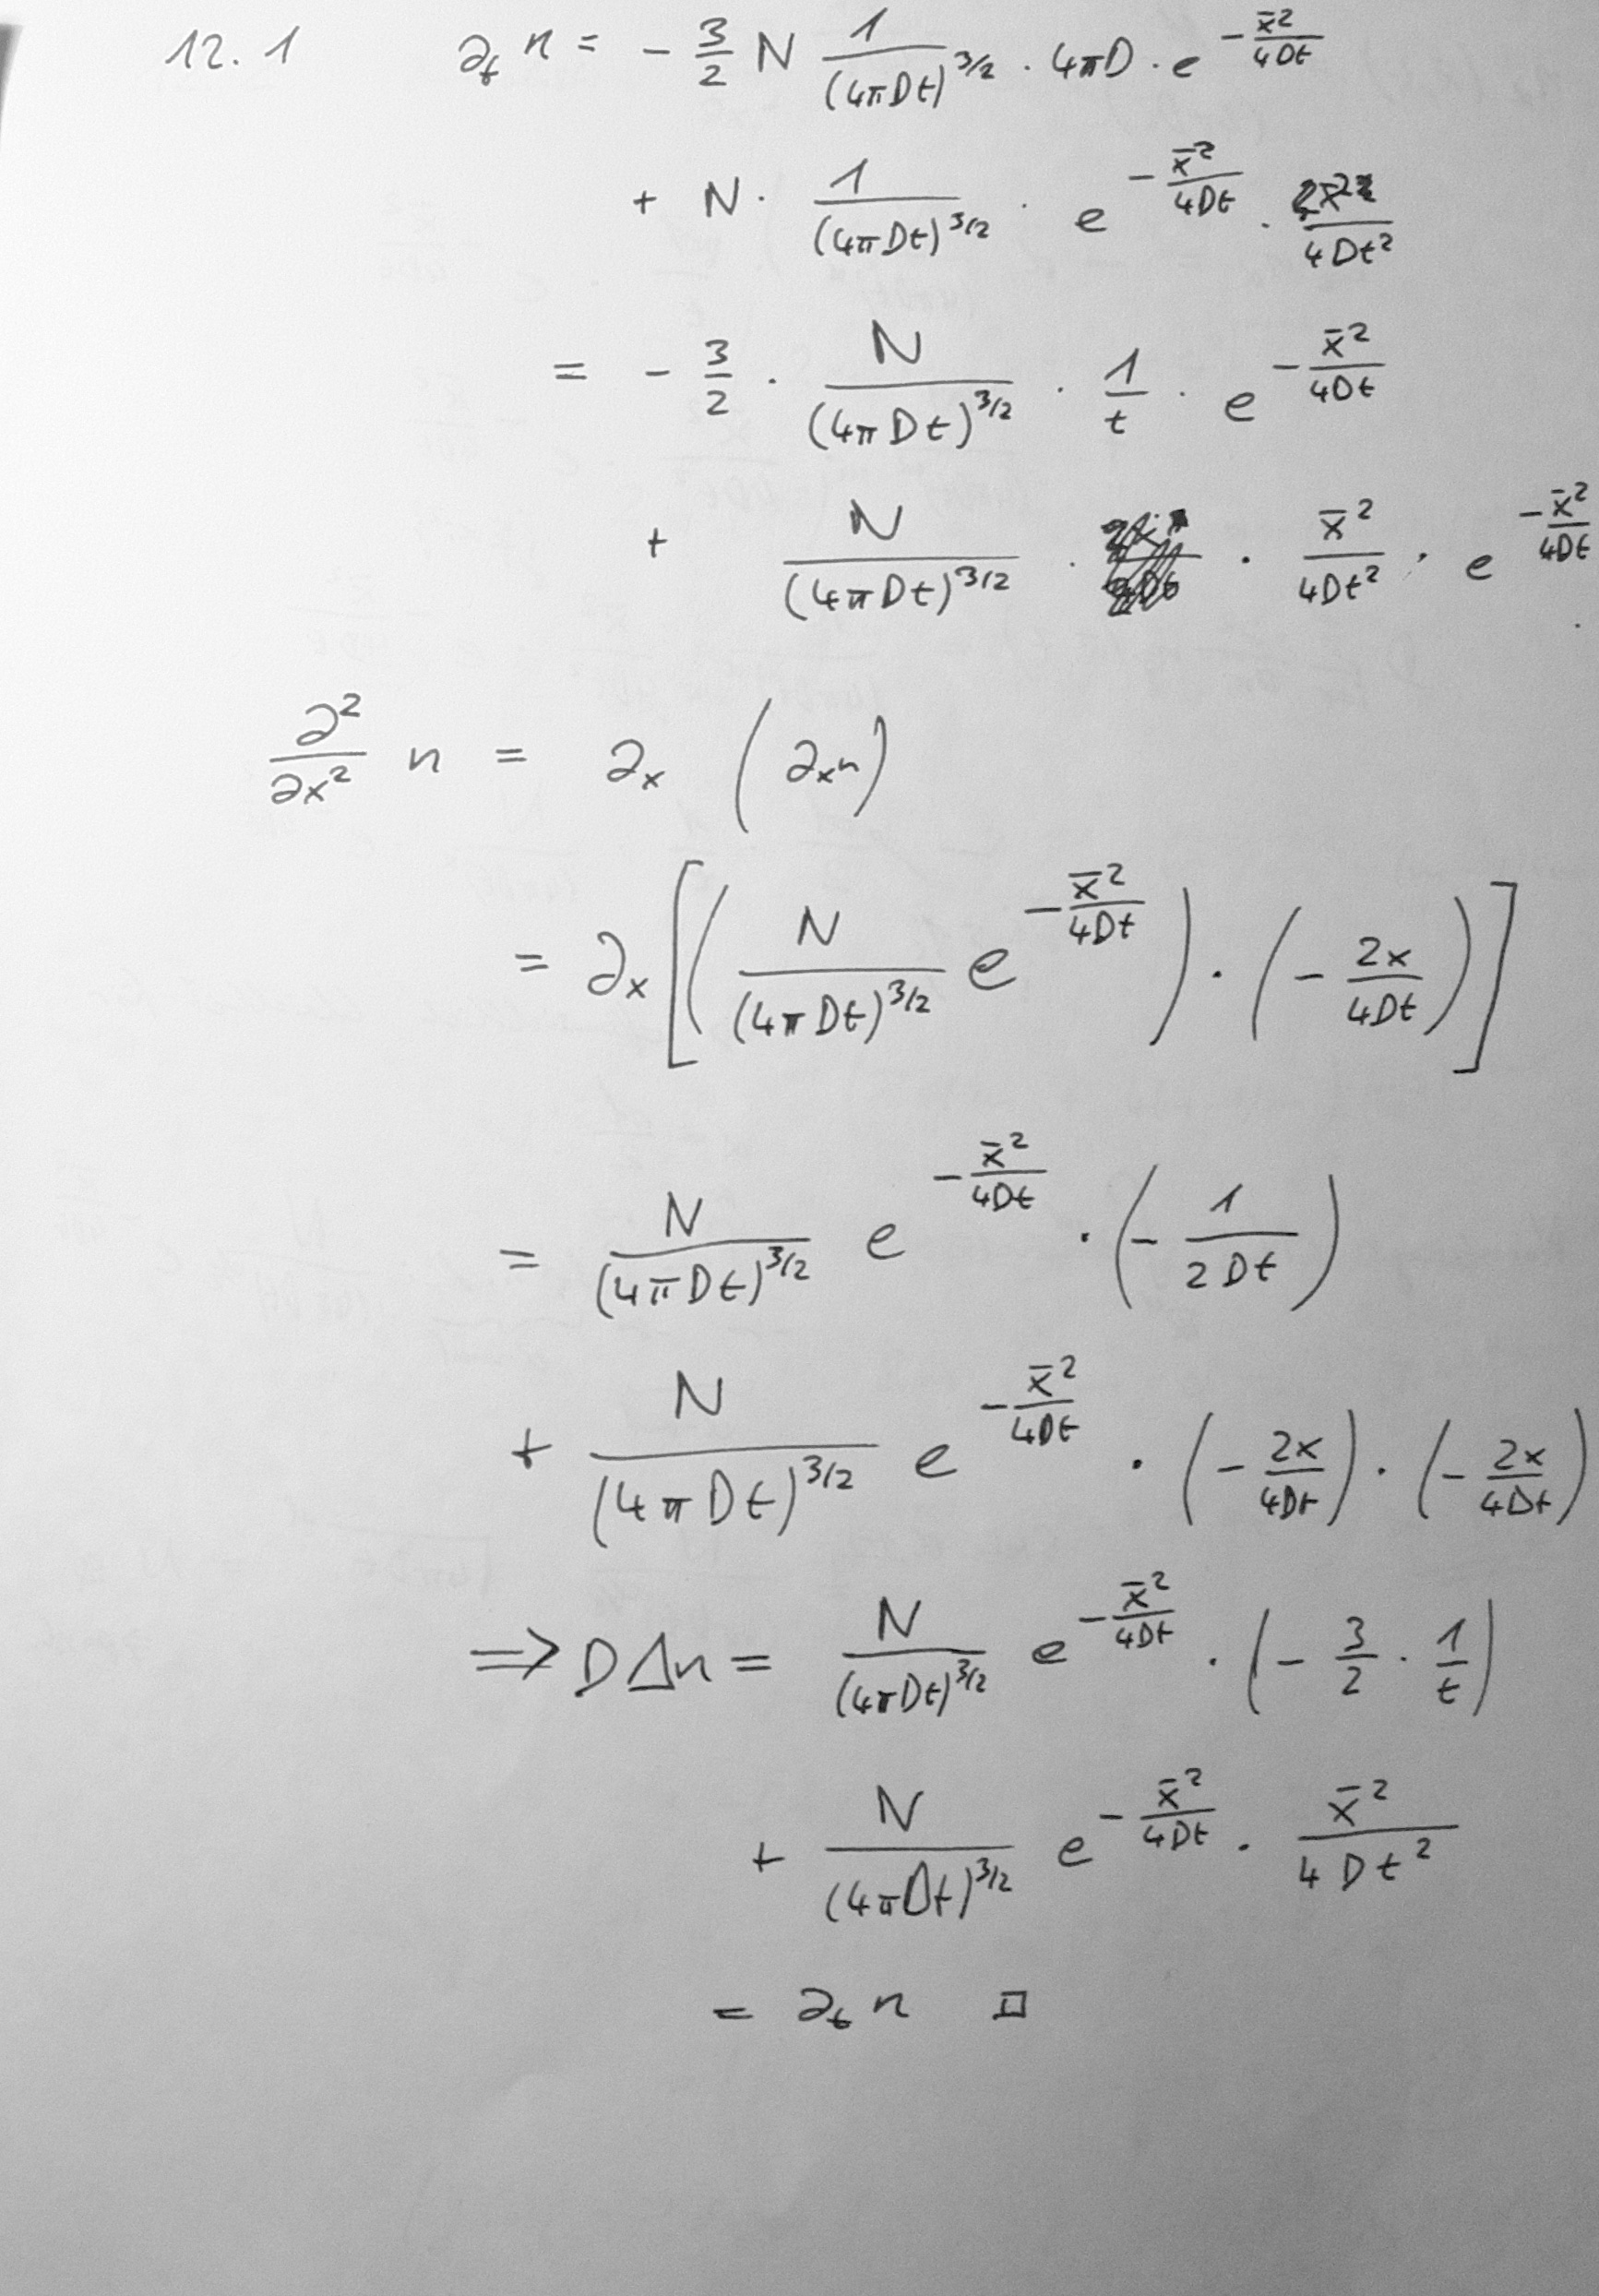 12.1 ∂ₜn = - 3/2 N 1/(4πDt)^3/2 · 4πD · e^(-x̄²/4Dt)
+ N · 1/(4πDt)^3/2 · e^(-x̄²/4Dt) · x̄²/4Dt²
= - 3/2 · N/(4πDt)^3/2 · 1/t · e^(-x̄²/4Dt)
+ N/(4πDt)^3/2 · · x̄²/4Dt² · e^(-x̄²/4Dt)
∂²/∂x² n = ∂ₓ (∂ₓn)
= ∂ₓ[(N/(4πDt)^3/2 e^(-x̄²/4Dt)) · (- 2x/4Dt)]
= N/(4πDt)^3/2 e^(-x̄²/4Dt) · (- 1/2Dt)
+ N/(4πDt)^3/2 e^(-x̄²/4Dt) · (- 2x/4Dt) · (- 2x/4Dt)
⇒ DΔn = N/(4πDt)^3/2 e^(-x̄²/4Dt) · (- 3/2 · 1/t)
+ N/(4πDt)^3/2 e^(-x̄²/4Dt) · x̄²/4Dt²
= ∂ₜn □